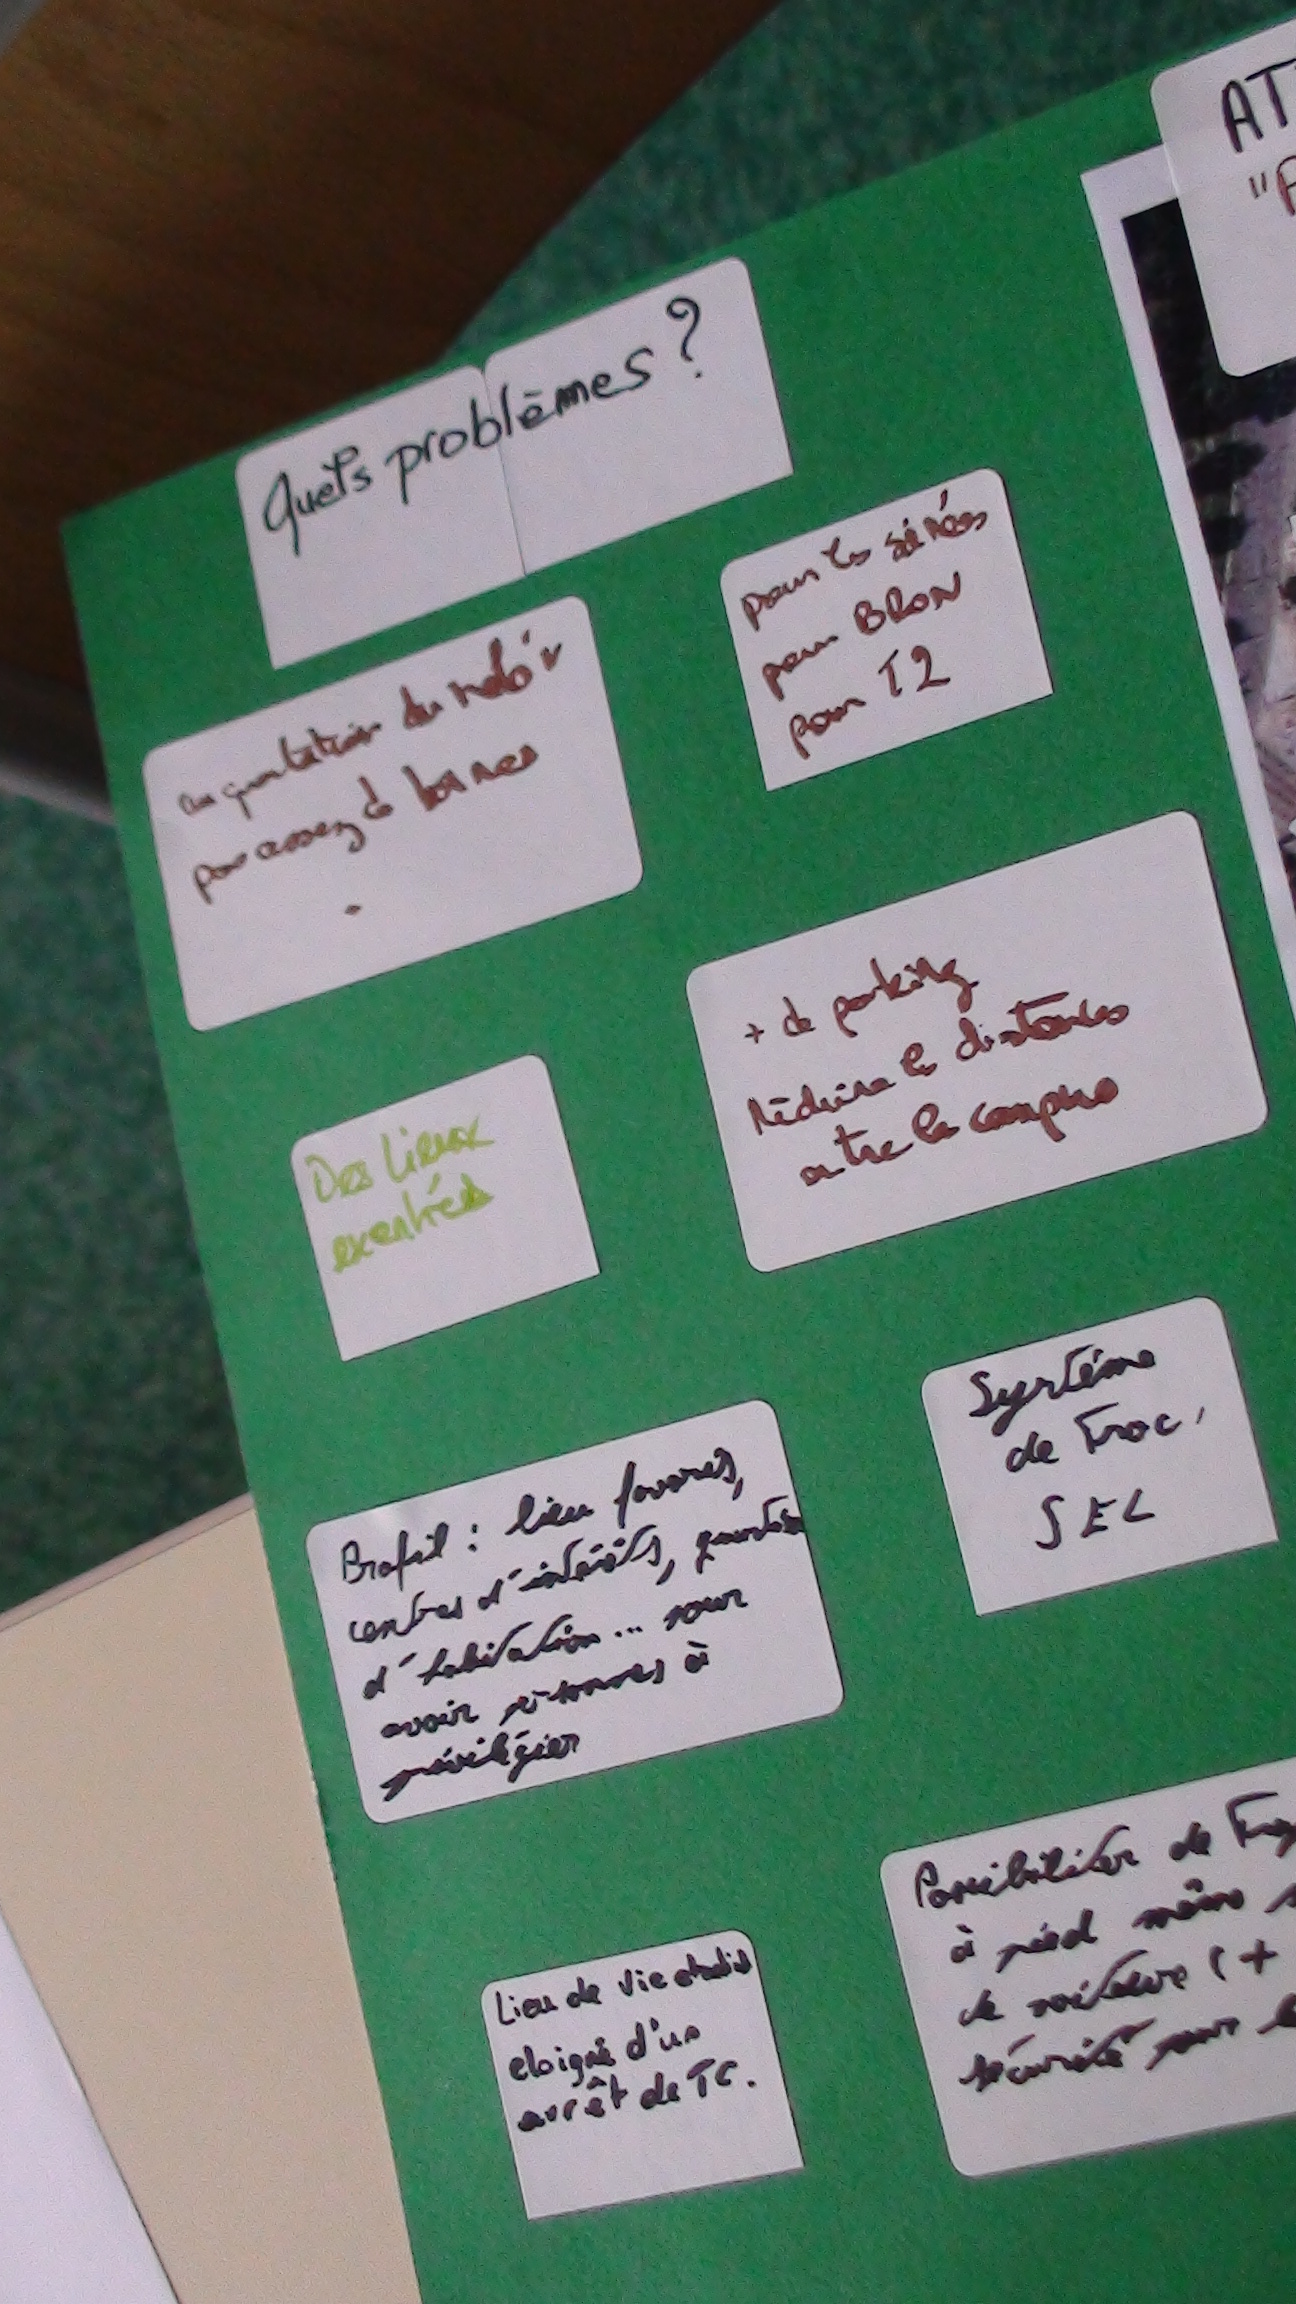 Quels problèmes ?
AT
"P
pour les soirées
pour BRON
pour T2
augmentation du vélo'v
pas assez de bornes
+ de parking
réduire les distances
entre les campus
Des lieux
exentrés
Système
de troc,
SEL
Profil : lieu favoris,
centres d'intérêts, quartier
d'habitation... pour
avoir personnes à
privilégier
Possibilité de
à pied même
de voiture (+
sécurité pour
Lieu de vie étudiant
eloigné d'un
arrêt de TC.